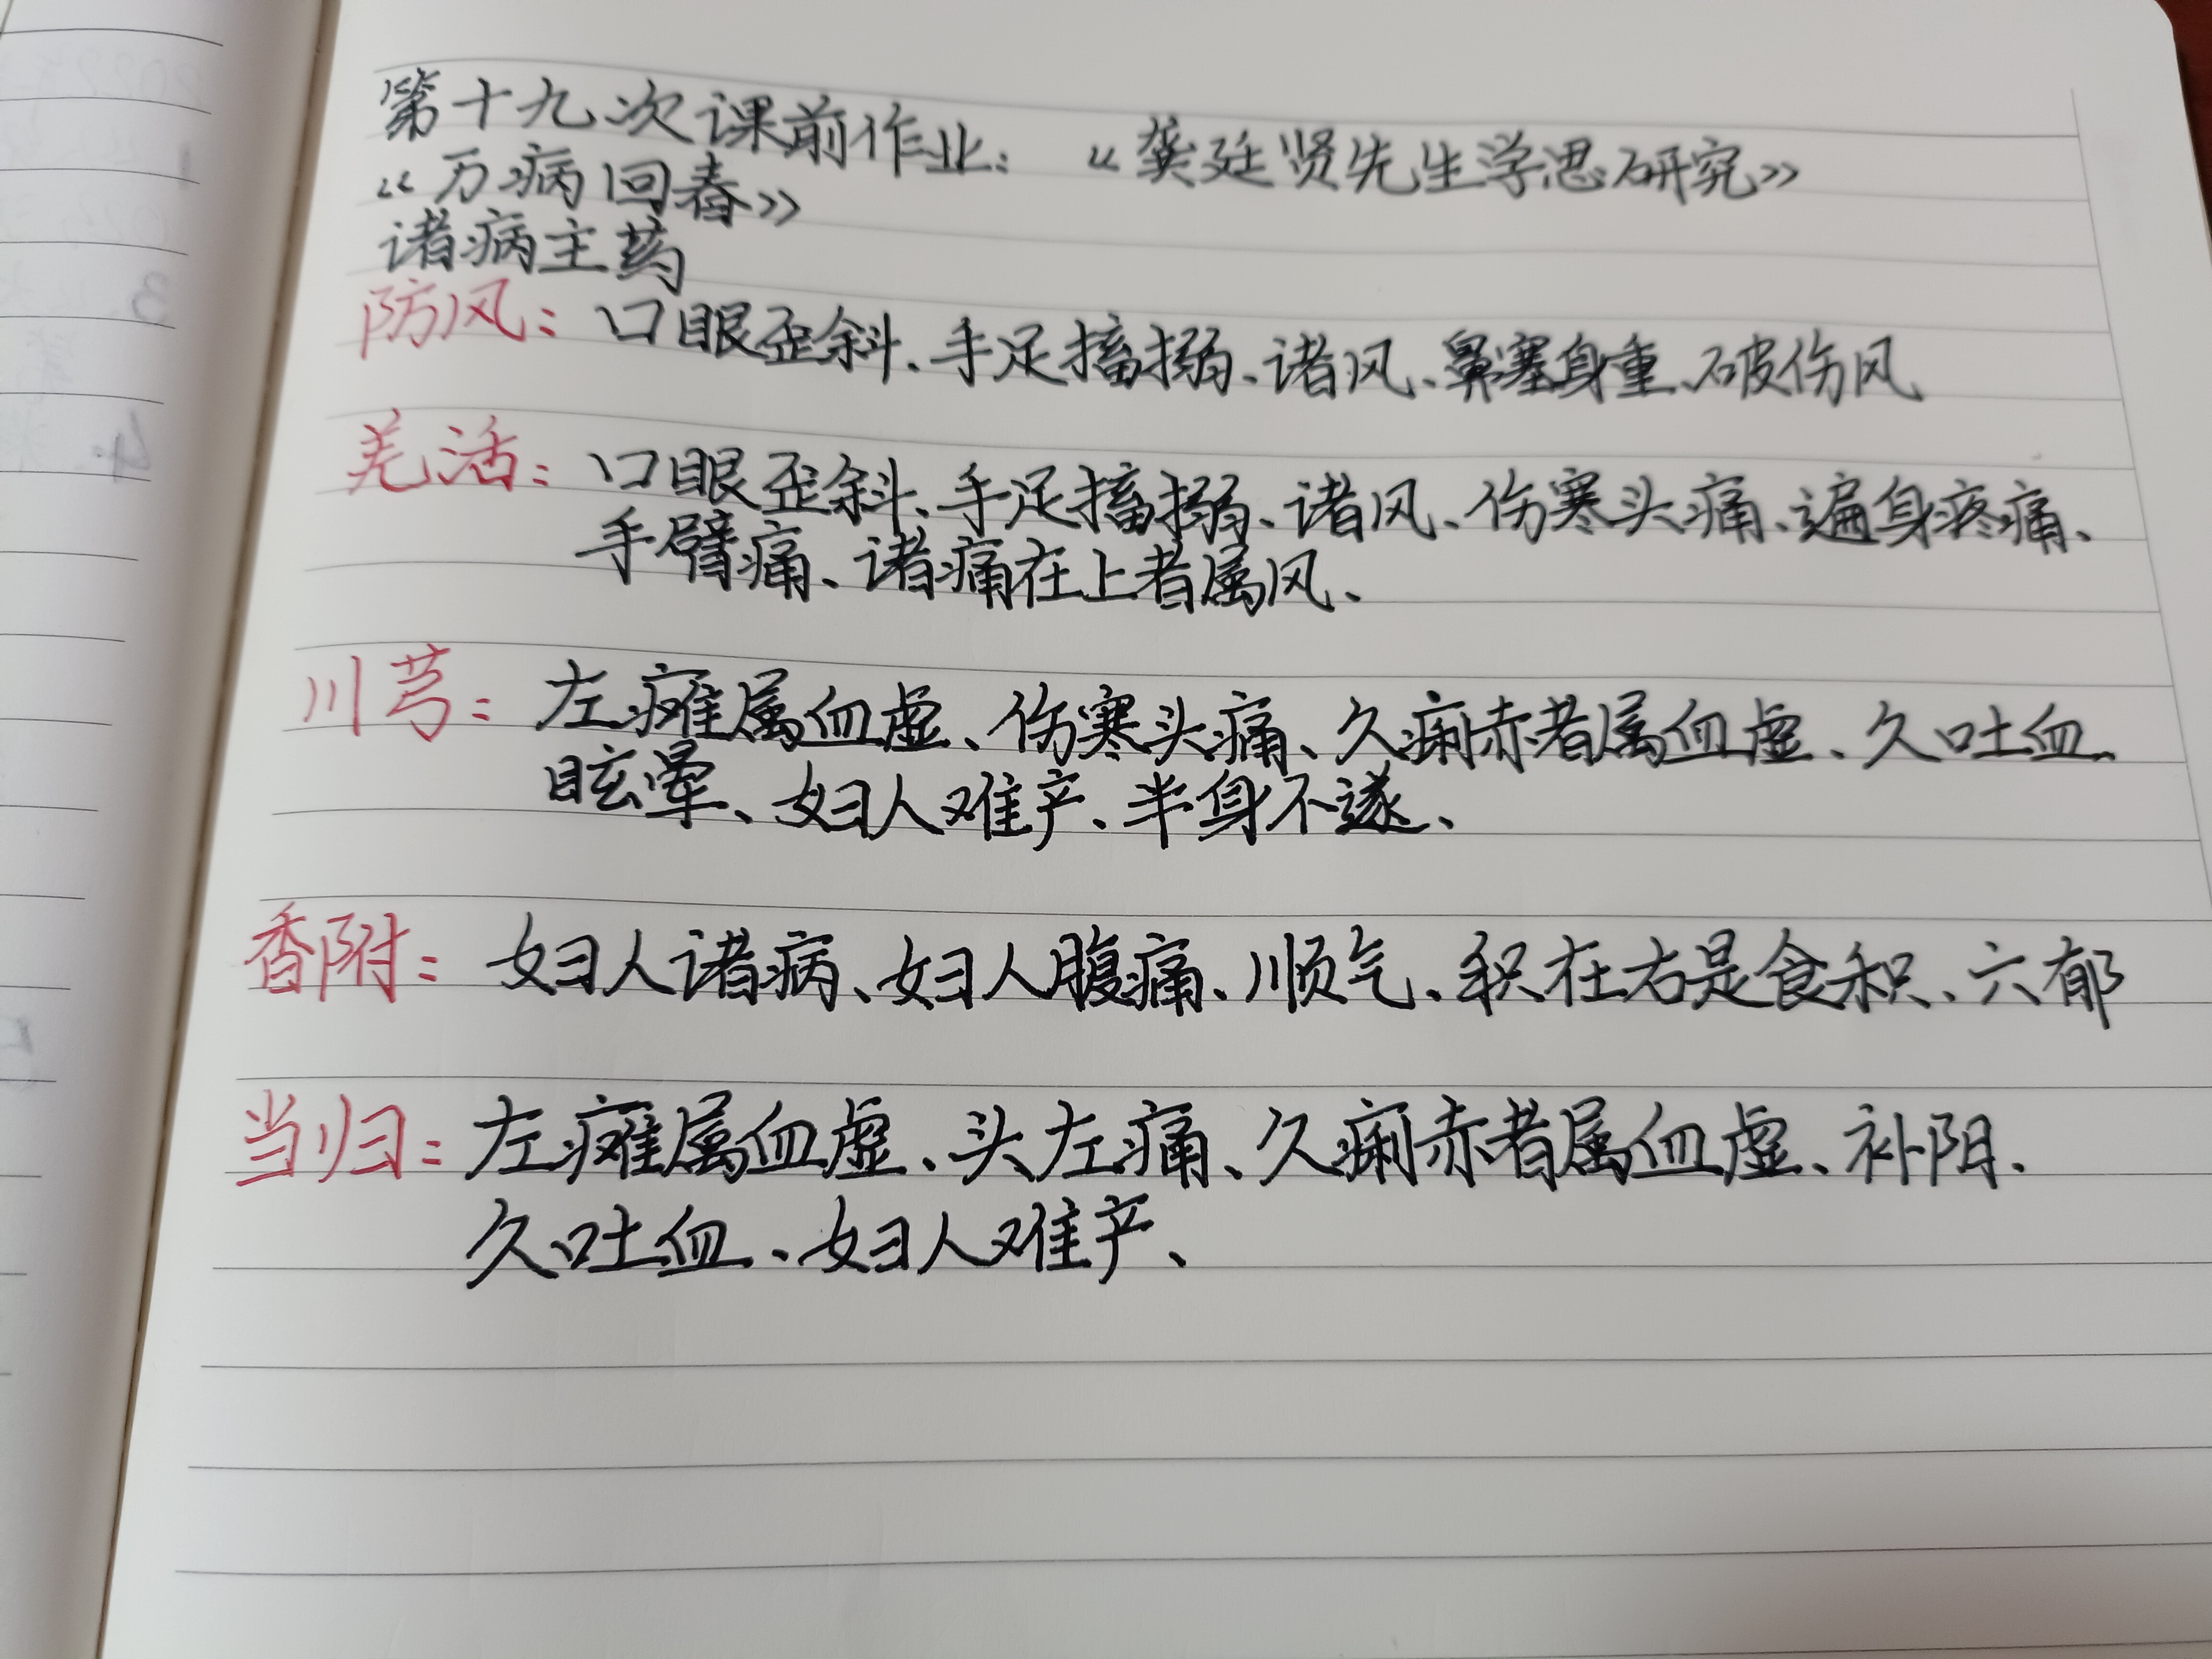 第十九次课前作业：《龚廷贤先生学思研究》
《万病回春》
诸病主药
防风：口眼歪斜、手足搐搦、诸风、鼻塞身重、破伤风
羌活：口眼歪斜、手足搐搦、诸风、伤寒头痛、遍身疼痛、
手臂痛、诸痛在上者属风、
川芎：左瘫属血虚、伤寒头痛、久痢赤者属血虚、久吐血、
眩晕、妇人难产、半身不遂、
香附：妇人诸病、妇人腹痛、顺气、积在右是食积、六郁
当归：左瘫属血虚、头左痛、久痢赤者属血虚、补阳、
久吐血、妇人难产、